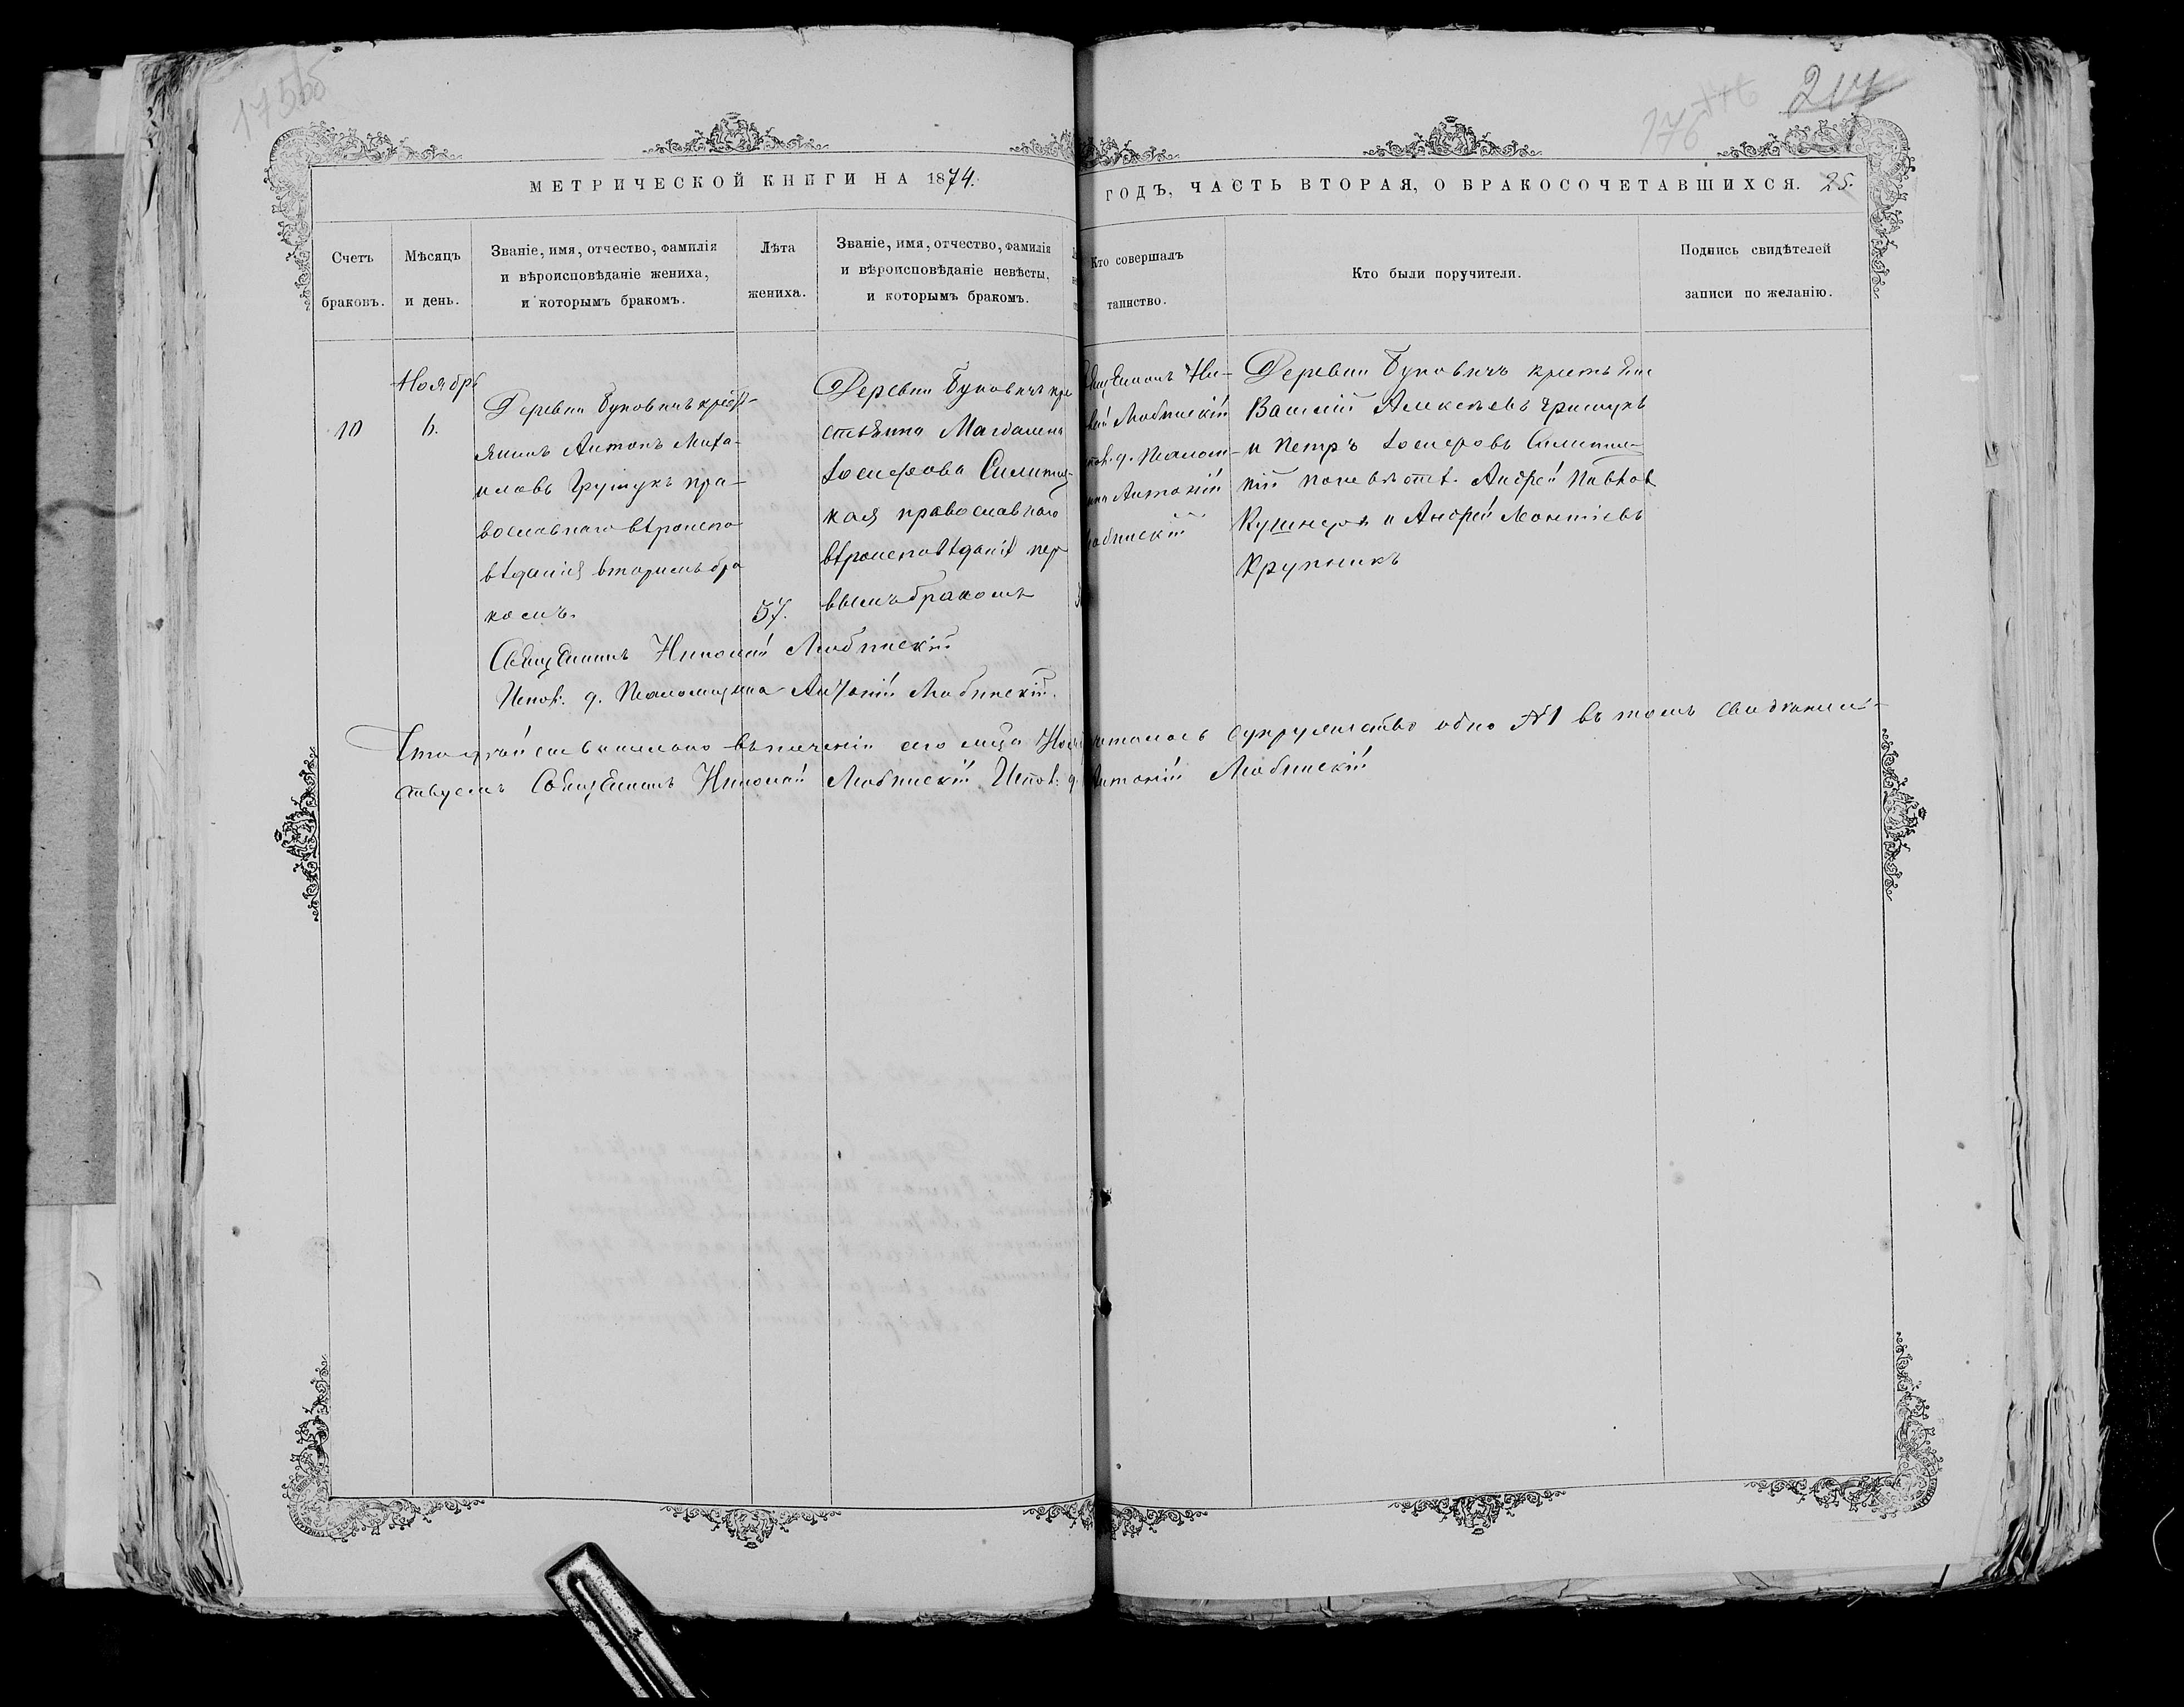 175об
176
214
МЕТРИЧЕСКОЙ КНИГИ НА 1874.
ГОДЪ, ЧАСТЬ ВТОРАЯ, О БРАКОСОЧЕТАВШИХСЯ. 25.
Счетъ
браковъ.
Мѣсяцъ
и день.
Званіе, имя, отчество, фамилія
и вѣроисповѣданіе жениха,
и которымъ бракомъ.
Лѣта
жениха.
Званіе, имя, отчество, фамилія
и вѣроисповѣданіе невѣсты,
и которымъ бракомъ.
Кто совершалъ
таинство.
Кто были поручители.
Подпись свидѣтелей
записи по желанію.
10
Ноябрь
6.
Деревни Буковичъ крест-
янинъ Антонъ Миха-
иловъ Грицукъ пра-
вославнаго вѣроиспо
вѣданія вторымъ бра
комъ.
57.
Деревни Буковичъ кре
стьянка Магдалена
Іосифова
кая православнаго
вѣроисповѣданія пер
вымъ бракомъ
Ни-
Любинскій
д. Псалом-
Антоній
Любинскій
Деревни Буковичъ крестьяне
Василій Алексѣевъ Грицукъ
и Петръ Іосифовъ
кій по невѣстѣ Андрей
Кушнеръ и Андрей Леонтіевъ
Крупникъ
Священникъ Николай Любинскій
Испол. д. Псаломщика Антоній Любинскій.
Что дѣйствительно въ теченіи сего мѣсяца
супружество одно №1 въ томъ свидѣтель-
ствуемъ Священникъ Николай Любинскій Испол. д. Антоній Любинскій